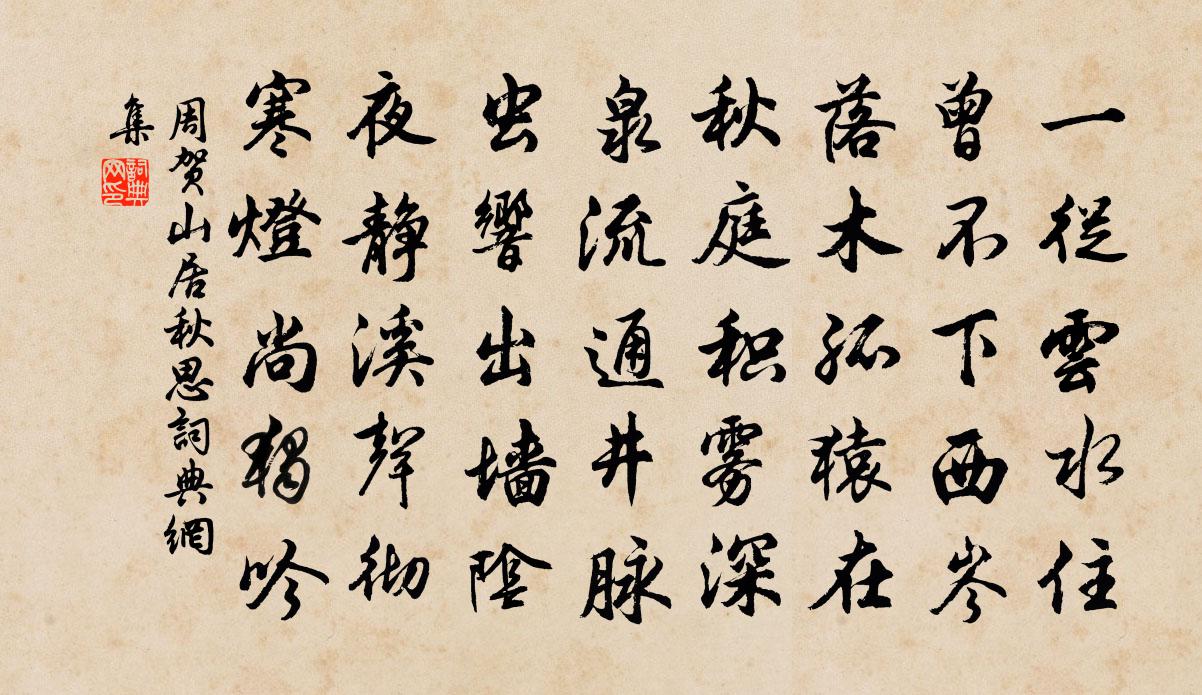 一從雲水住
曾不下西岑
落木孤猿在
秋庭积雾深
泉流通井脉
虫響出墙陰
夜静溪聲彻
寒燈尚獨吟
周贺山居秋思詞典網
集
詞典网印